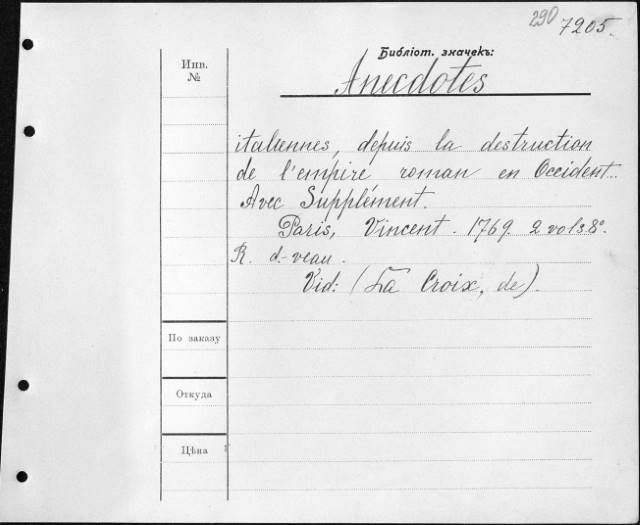 290 7205.
Библіот. значекъ:
Инв.
№
Anecdotes
italiennes, depuis la destruction
de l'empire roman en Occident.
Avec Supplément.
Paris, Vincent. 1769. 2 vols. 8°.
R. d-veau.
Vid: (La Croix, de).
По заказу
Откуда
Цѣна